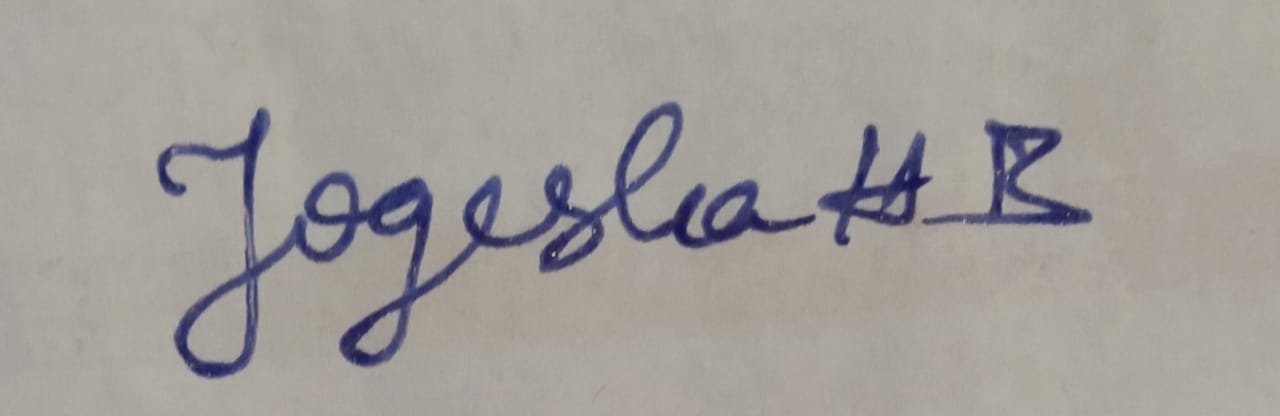 Yogesha H B